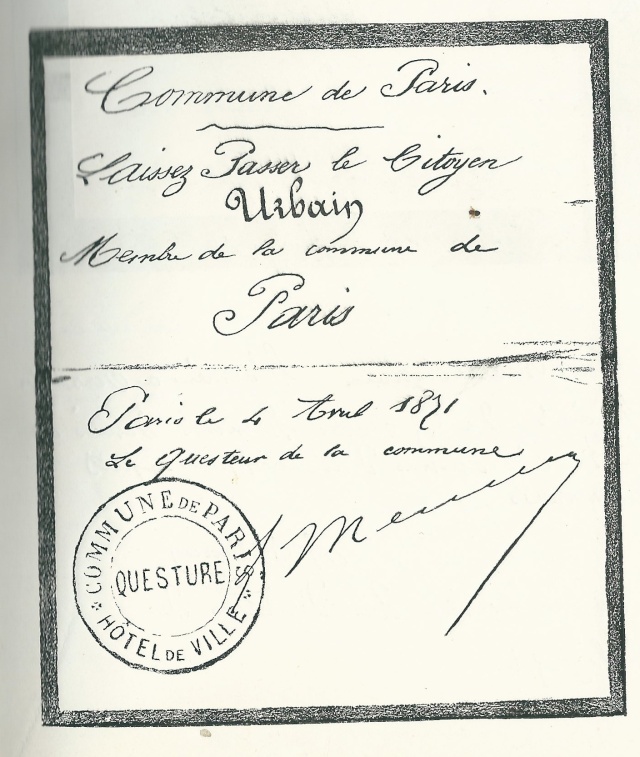 Commune de Paris.
Laissez Passer le Citoyen
Urbain
Membre de la commune de
Paris
Paris le 4 Avril 1871
Le Questeur de la commune
COMMUNE DE PARIS
QUESTURE
HÔTEL DE VILLE